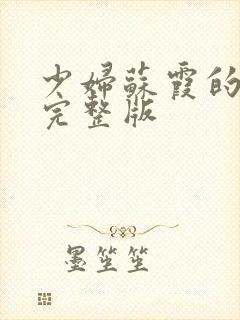 少婦蘇霞的
完整版
墨笙笙